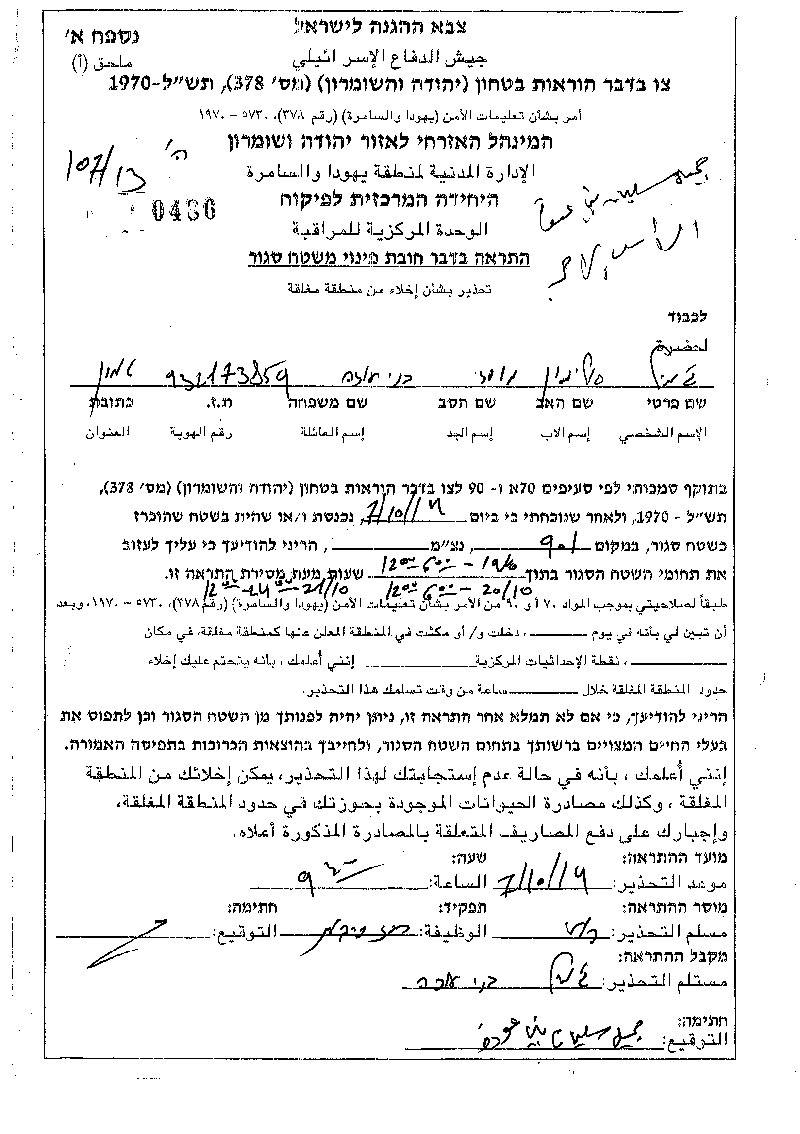 צבא ההגנה לישראל
נספח א'
جيش الدفاع الإسرائيلي
ملحق (أ)
צו בדבר הוראות בטחון (יהודה והשומרון) (מס' 378), תש"ל-1970
أمر بشأن تعليمات الأمن (يهودا والسامرة) (رقم ٣٧٨)، ٥٧٣٠ – ١٩٧٠
המינהל האזרחי לאזור יהודה ושומרון
الإدارة المدنية لمنطقة يهودا والسامرة
ה' 107/13
היחידה המרכזית לפיקוח
0480
الوحدة المركزية للمراقبة
جميل سليمان بني عودة
התראה בדבר חובת פינוי משטח סגור
تحذير بشأن إخلاء من منطقة مغلقة
לכבוד
لحضرة
932173859
שם פרטי שם האב שם הסב שם משפחה ת.ז. כתובת
الإسم الشخصي إسم الاب إسم الجد إسم العائلة رقم الهوية العنوان
בתוקף סמכותי לפי סעיפים 70א ו- 90 לצו בדבר הוראות בטחון (יהודה והשומרון) (מס' 378),
תש"ל - 1970, ולאחר שנוכחתי כי ביום 7/10/14, נכנסת ו/או שהית בשטח שהוכרז
כשטח סגור, במקום 901, נצ"מ, הריני להודיעך כי עליך לעזוב
את תחומי השטח הסגור בתוך 19/10 - 6:00 - 12:00 שעות מעת מסירת התראה זו.
20/10 - 6:00 - 12:00
21/10
طبقاً لصلاحيتي بموجب المواد ٧٠ أ و ٩٠ من الأمر بشأن تعليمات الأمن (يهودا والسامرة) (رقم ٣٧٨)، ٥٧٣٠ – ١٩٧٠، وبعد
أن تبين لي بأنه في يوم ، دخلت و/ أو مكثت في المنطقة المعلن عنها كمنطقة مغلقة، في مكان
، نقطة الإحداثيات المركزية إنني أعلمك ، بأنه يتحتم عليك إخلاء
حدود المنطقة المغلقة خلال ساعة من وقت تسلمك هذا التحذير.
הריני להודיעך, כי אם לא תמלא אחר התראה זו, ניתן יהיה לפנותך מן השטח הסגור וכן לתפוס את
בעלי החיים המצויים ברשותך בתחום השטח הסגור, ולחייבך בהוצאות הכרוכות בתפיסה האמורה.
إنني أعلمك ، بأنه في حالة عدم إستجابتك لهذا التحذير، يمكن إخلائك من المنطقة
المغلقة ، وكذلك مصادرة الحيوانات الموجودة بحوزتك في حدود المنطقة المغلقة،
وإجبارك على دفع المصاريف المتعلقة بالمصادرة المذكورة أعلاه.
מועד ההתראה: שעה:
موعد التحذير: 7/10/14 الساعة: 9
מוסר ההתראה: תפקיד: חתימה:
مسلم التحذير: الوظيفة: التوقيع:
מקבל ההתראה:
مستلم التحذير:
חתימה:
التوقيع: جميل سليمان بني عودة